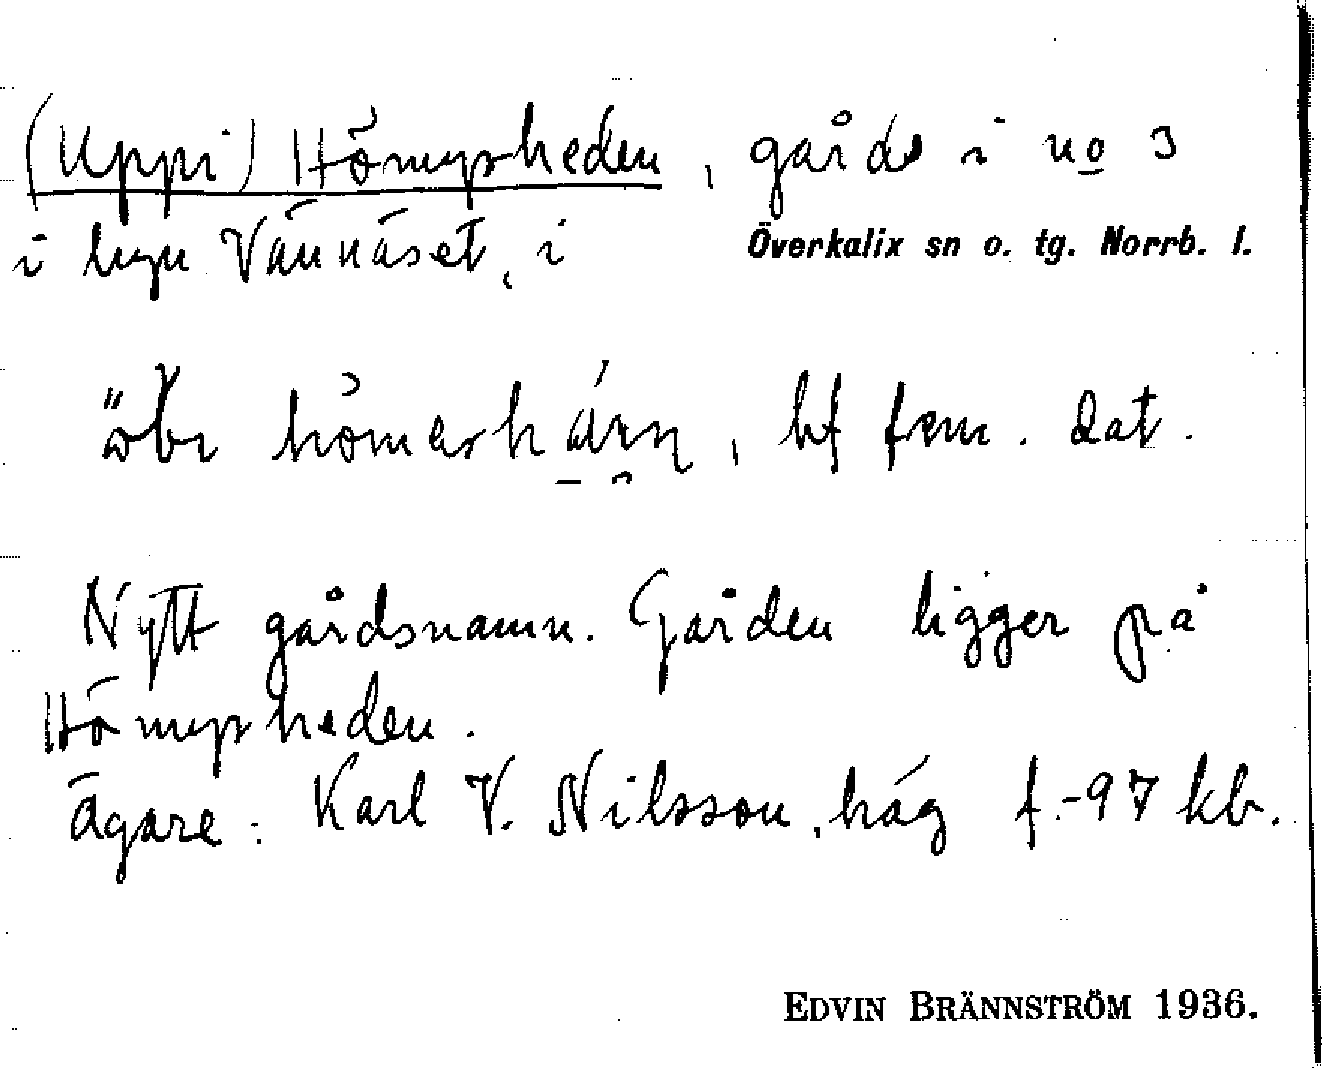 (Uppi) Hömyrheden, gård i no 3
i byn Vännäset, i Överkalix sn o. tg. Norrb. l.
bf fem. dat.
Nytt gårdsnamn. Gården ligger på
Hömyrheden.
Ägare: Karl V. Nilsson, häg f.-97 kb.
EDVIN BRÄNNSTRÖM 1936.